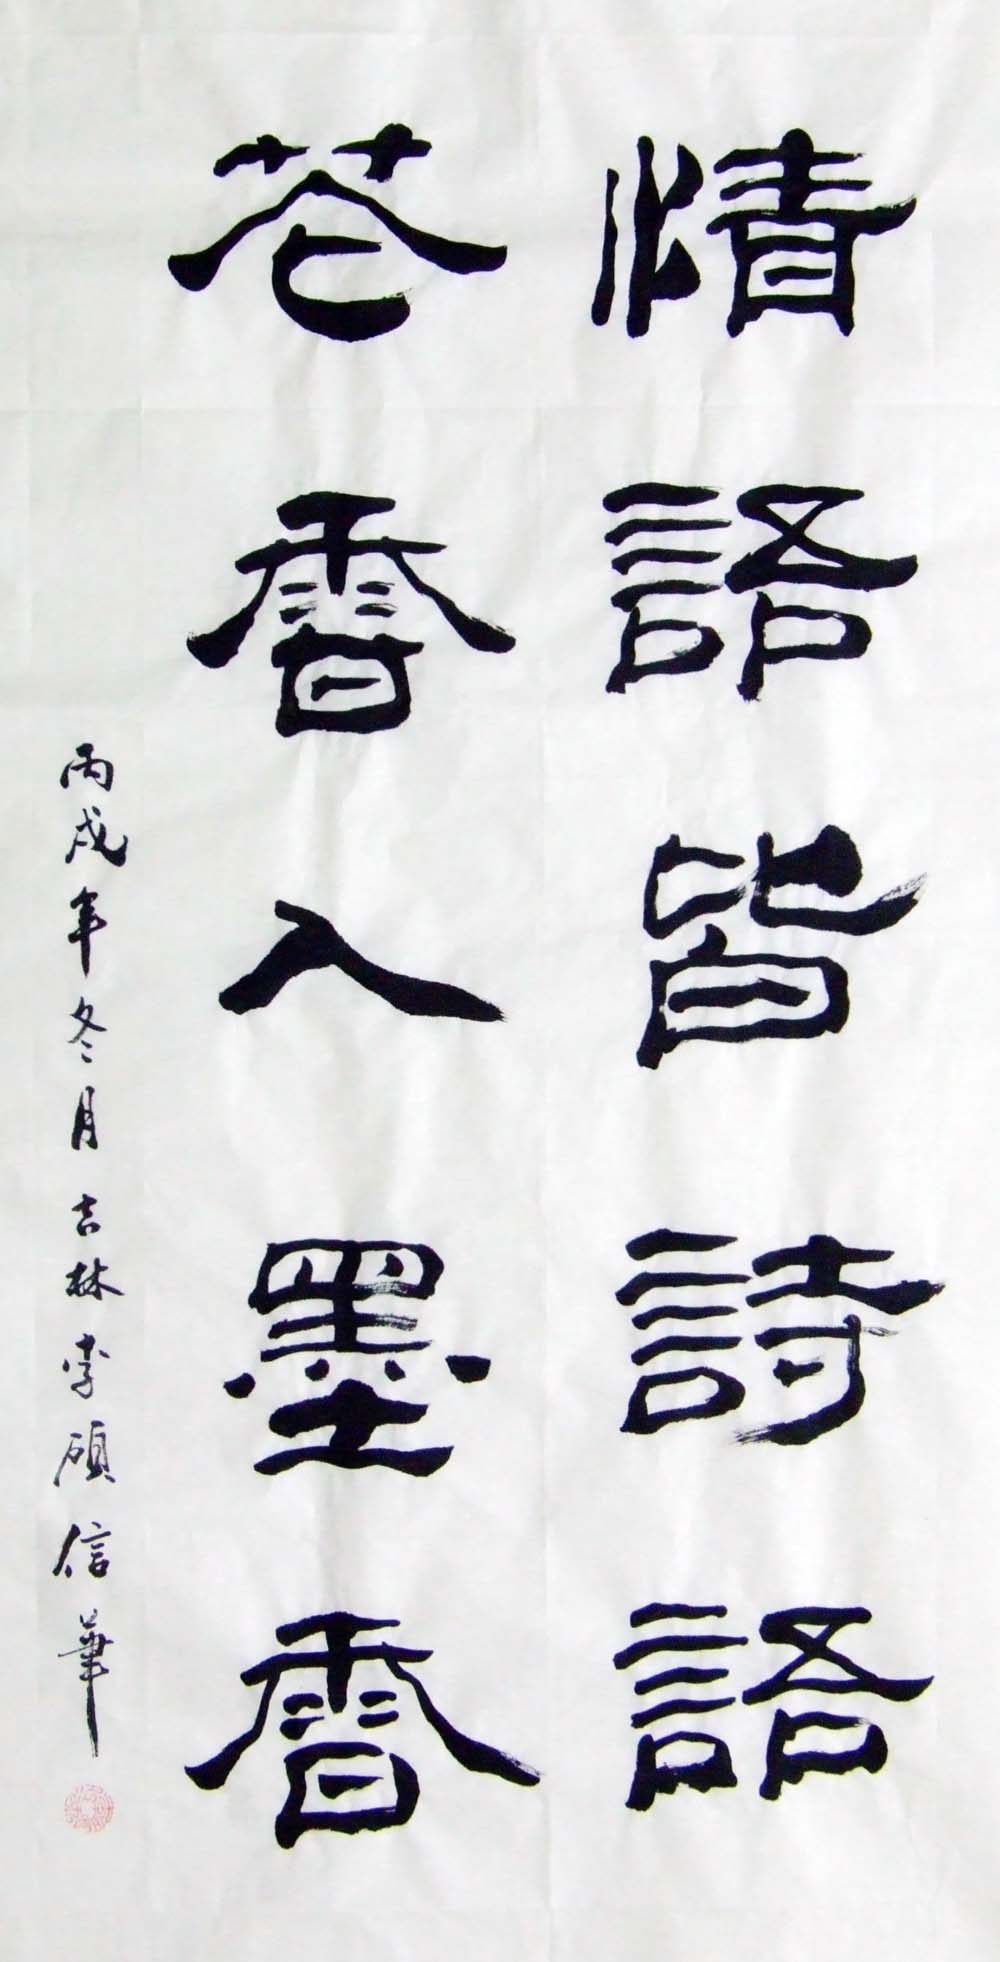 情語皆詩語
花香入墨香
丙戌年冬月吉林李碩信華